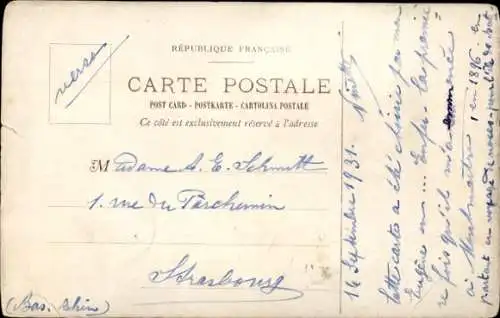 verso
RÉPUBLIQUE FRANÇAISE
CARTE POSTALE
POST CARD - POSTKARTE - CARTOLINA POSTALE
Ce côté est exclusivement réservé à l'adresse
Madame A. E. Schmitt
1. rue du Parchemin
Strasbourg
(Bas. Rhin)
16 Septembre 1931.
Cette carte a été choisie par mon
Eugène
fois qu'il m'a
à Montmartre en 1896. en
partant en